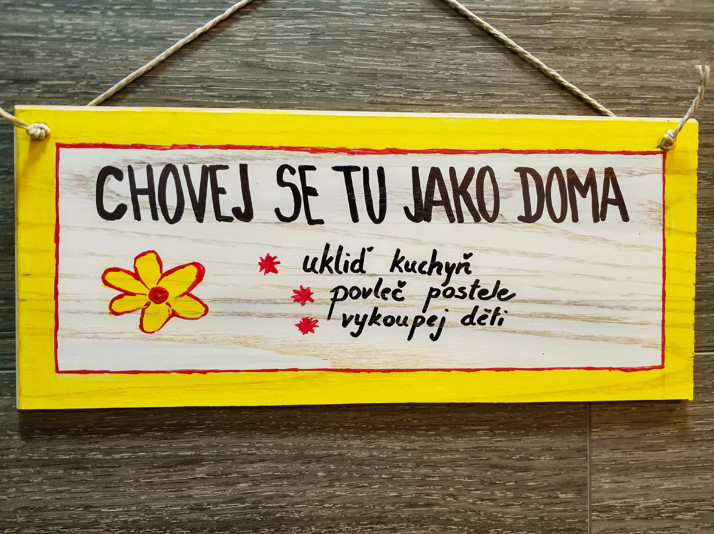 CHOVEJ SE TU JAKO DOMA
ukliď kuchyň
povleč postele
vykoupej děti